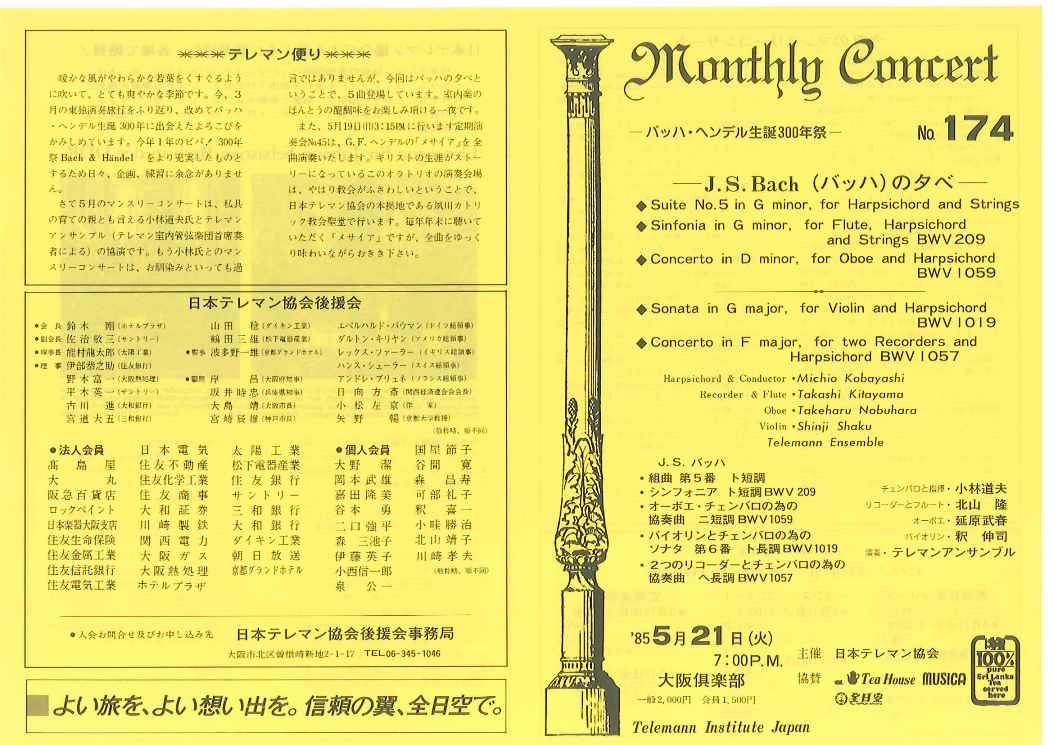 ＊＊＊テレマン便り＊＊＊
暖かな風がやわらかな若葉をくすぐるよう
に吹いて、とても爽やかな季節です。今、3
月の東独演奏旅行をふり返り、改めてバッハ
・ヘンデル生誕 300年に出会えたよろこびを
かみしめています。今年1年のビバ! 300年
祭 Bach & Händel をより充実したものと
するため日々、企画、練習に余念がありませ
ん。
さて5月のマンスリーコンサートは、私共
の育ての親とも言える小林道夫氏とテレマン
アンサンブル（テレマン室内管弦楽団首席奏
者による）の協演です。もう小林氏とのマン
スリーコンサートは、お馴染みといっても過
言ではありませんが、今回はバッハの夕べと
いうことで、5曲登場しています。室内楽の
ほんとうの醍醐味をお楽しみ頂ける一夜です。
また、5月19日(日)3:15PMに行います定期演
奏会№45は、G.F.ヘンデルの「メサイア」を全
曲演奏いたします。キリストの生涯がストー
リーになっているこのオラトリオの演奏会場
は、やはり教会がふさわしいということで、
日本テレマン協会の本拠地である夙川カトリ
ック教会聖堂で行います。毎年年末に聴いて
いただく「メサイア」ですが、全曲をゆっく
り味わいながらおきき下さい。
日本テレマン協会後援会
●会長 鈴木 剛 (ホテルプラザ)
●副会長 佐治敬三 (サントリー)
●理事長 能村龍太郎 (太陽工業)
●理事 伊部恭之助 (住友銀行)
野本富一 (大阪熱処理)
平木英一 (サントリー)
古川 進 (大和銀行)
宮道大五 (三和銀行)
山田 稔 (ダイキン工業)
鵜田三雄 (松下電器産業)
●幹事 波多野一雄 (京都グランドホテル)
●顧問 岸 昌 (大阪府知事)
坂井時忠 (兵庫県知事)
大島 靖 (大阪市長)
宮崎辰雄 (神戸市長)
エベルハルド・バウマン (ドイツ総領事)
ダルトン・キリヤン (アメリカ総領事)
レックス・ファーラー (イギリス総領事)
ハンス・シューラー (スイス総領事)
アンドレ・ブリュネ (フランス総領事)
日向方斎 (関西経済連合会会長)
小松左京 (作家)
矢野 暢 (京都大学教授)
(敬称略、順不同)
●法人会員
髙島屋
大丸
阪急百貨店
ロックペイント
日本楽器大阪支店
住友生命保険
住友金属工業
住友信託銀行
住友電気工業
日本電気
住友不動産
住友化学工業
住友商事
大和証券
川崎製鉄
関西電力
大阪ガス
大阪熱処理
ホテルプラザ
太陽工業
松下電器産業
住友銀行
サントリー
三和銀行
大和銀行
ダイキン工業
朝日放送
京都グランドホテル
●個人会員
大野 潔
岡本武雄
嘉田隆美
谷本 勇
二口強平
森三池子
伊藤英子
小西信一郎
泉 公一
国屋節子
谷間 寛
森 昌寿
可部礼子
釈 喜一
小畦勝治
北山靖子
川崎孝夫
(敬称略、順不同)
●入会お問合せ及びお申し込み先 日本テレマン協会後援会事務局
大阪市北区曽根崎新地2-1-17 TEL.06-345-1046
よい旅を、よい想い出を。信頼の翼、全日空で。
Monthly Concert
—バッハ・ヘンデル生誕300年祭—
No. 174
—J.S.Bach（バッハ）の夕べ—
◆Suite No.5 in G minor, for Harpsichord and Strings
◆Sinfonia in G minor, for Flute, Harpsichord
and Strings BWV209
◆Concerto in D minor, for Oboe and Harpsichord
BWV1059
◆Sonata in G major, for Violin and Harpsichord
BWV1019
◆Concerto in F major, for two Recorders and
Harpsichord BWV1057
Harpsichord & Conductor・Michio Kobayashi
Recorder & Flute・Takashi Kitayama
Oboe・Takeharu Nobuhara
Violin・Shinji Shaku
Telemann Ensemble
J.S. バッハ
・組曲 第5番 ト短調
・シンフォニア ト短調 BWV 209
・オーボエ・チェンバロの為の
協奏曲 ニ短調 BWV1059
・バイオリンとチェンバロの為の
ソナタ 第6番 ト長調 BWV1019
・2つのリコーダーとチェンバロの為の
協奏曲 ヘ長調 BWV1057
チェンバロと指揮・小林道夫
リコーダーとフルート・北山 隆
オーボエ・延原武春
バイオリン・釈 伸司
演奏・テレマンアンサンブル
'85 5月21日(火)
7:00P.M.
大阪倶楽部
一般2,000円 会員1,500円
主催 日本テレマン協会
協賛 Tea House MUSICA
全日空
100%
pure
Sri Lanka
Tea
served
here
Telemann Institute Japan